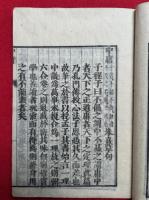 中庸 朱熹章句
子程子曰不偏之謂中不易之謂庸中
者天下之正道庸者天下之定理此篇
乃孔門傳授心法子思恐其久而差也
故筆之於書以授孟子其書始言一理
中散爲萬事末復合爲一理放之則彌
六合卷之則退藏於密其味無窮皆實
學也善讀者玩索而有得焉則終身用
之有不能盡者矣